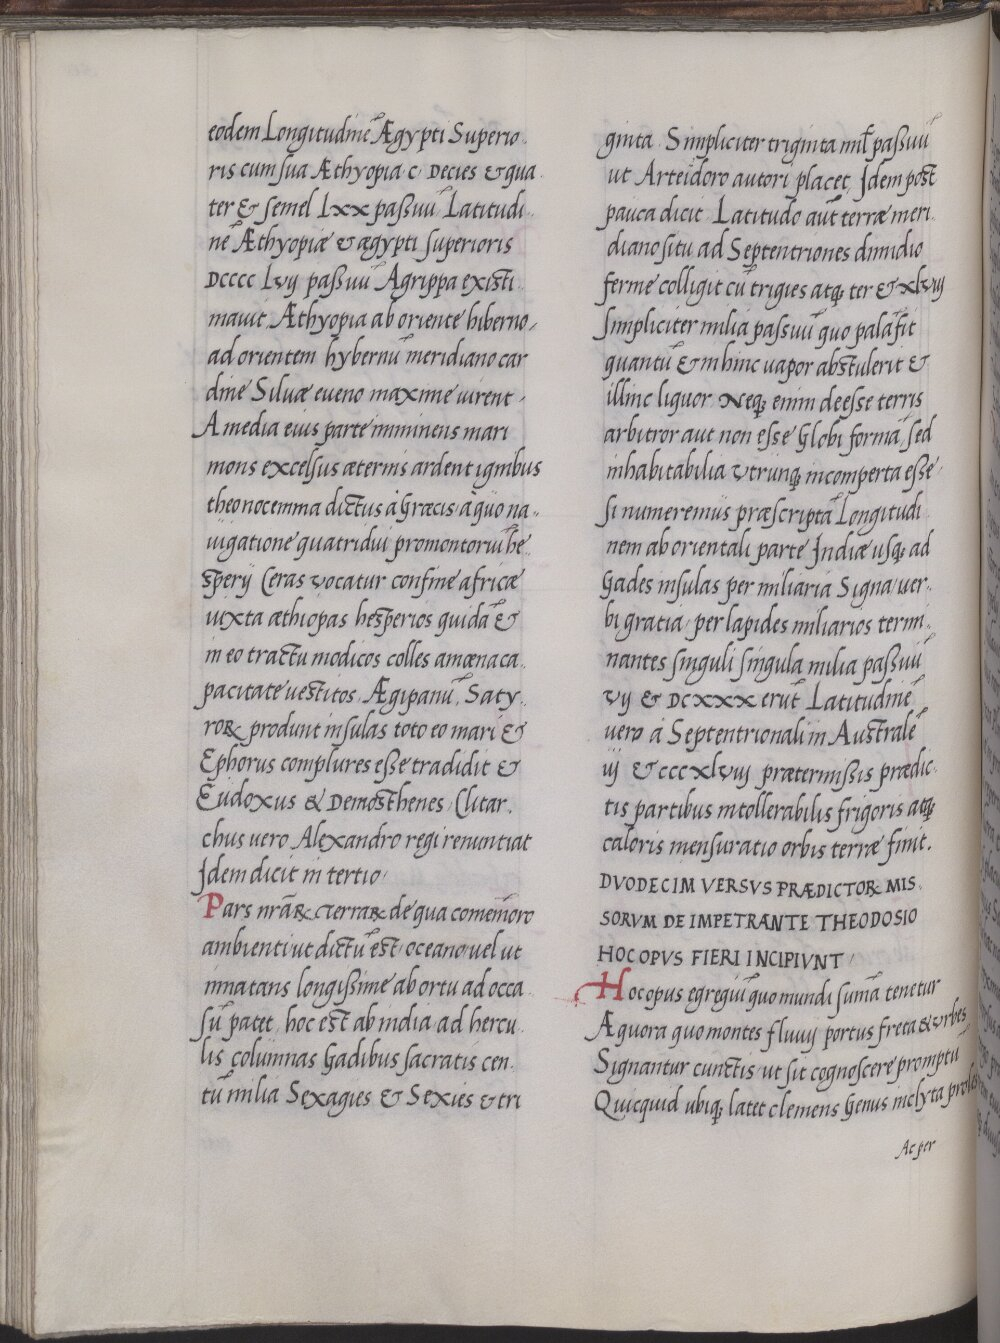 eodem Longitudinē Ægypti Superio-
ris cum sua Æthyopia c· Decies & qua-
ter & semel Lxx passuū Latitudi-
nē Æthyopiæ & ægypti superioris
Dcccc Lvij passuū Agrippa existi-
mauit Æthyopia ab oriente hiberno,
ad orientem hybernū meridiano car
dine Siluæ eueno maxime uirent,
A media eius parte imminens mari
mons excelsus æternis ardent ignibus
theonocemma dictus à Græcis à quo na-
uigatione quatridui promontoriū he-
sperij Ceras vocatur confine africæ
iuxta æthiopas hesperios quidā &
in eo tractu modicos colles amœna ca-
pacitate uestitos Ægipanū, Saty-
roꝝ produnt insulas toto eo mari &
Ephorus complures esse tradidit &
Eudoxus & Demosthenes Clitar-
chus uero Alexandro regi renuntiat
Idem dicit in tertio,
Pars nr̄aꝝ terraꝝ de qua comemoro
ambienti ut dictū est, oceano uel ut
innatans longissime ab ortu ad occa-
sū patet, hoc est ab india ad hercu-
lis columnas Gadibus sacratis cen-
tū milia Sexagies & Sexies & tri
ginta Simpliciter triginta mil̄ passuū
ut Arteidoro autori placet Idem post
pauca dicit Latitudo aut̄ terræ meri-
diano situ ad Septentriones dimidio
ferme colligit cū trigies atq; ter & xlviij
simpliciter milia passuū quo palā fit
quantū & in hinc uapor abstulerit &
illinc liquor Neq; enim deesse terris
arbitror aut non esse Globi formā, sed
inhabitabilia vtrinq; incomperta esse,
si numeremus præscriptā Longitudi-
nem ab orientali parte Indiæ usq; ad
Gades insulas per miliaria Signa uer-
bi gratia per lapides miliarios termi-
nantes singuli singula milia passuū
vij & Dcxxx erūt Latitudinē
uero à Septentrionali in Australē
iij & ccc xlviij prætermissis prædic-
tis partibus intollerabilis frigoris atq;
caloris mensuratio orbis terræ finit.
DVODECIM VERSVS PRÆDICTOꝝ MIS-
SORVM DE IMPETRANTE THEODOSIO
HOC OPVS FIERI INCIPIVNT,
Hoc opus egregiū quo mundi sumā tenetur
Æquora quo montes fluuij portus freta & vrbes
Signantur cunctis ut sit cognoscere promptū
Quicquid ubiq; latet clemens Genus inclyta proles
Ac per